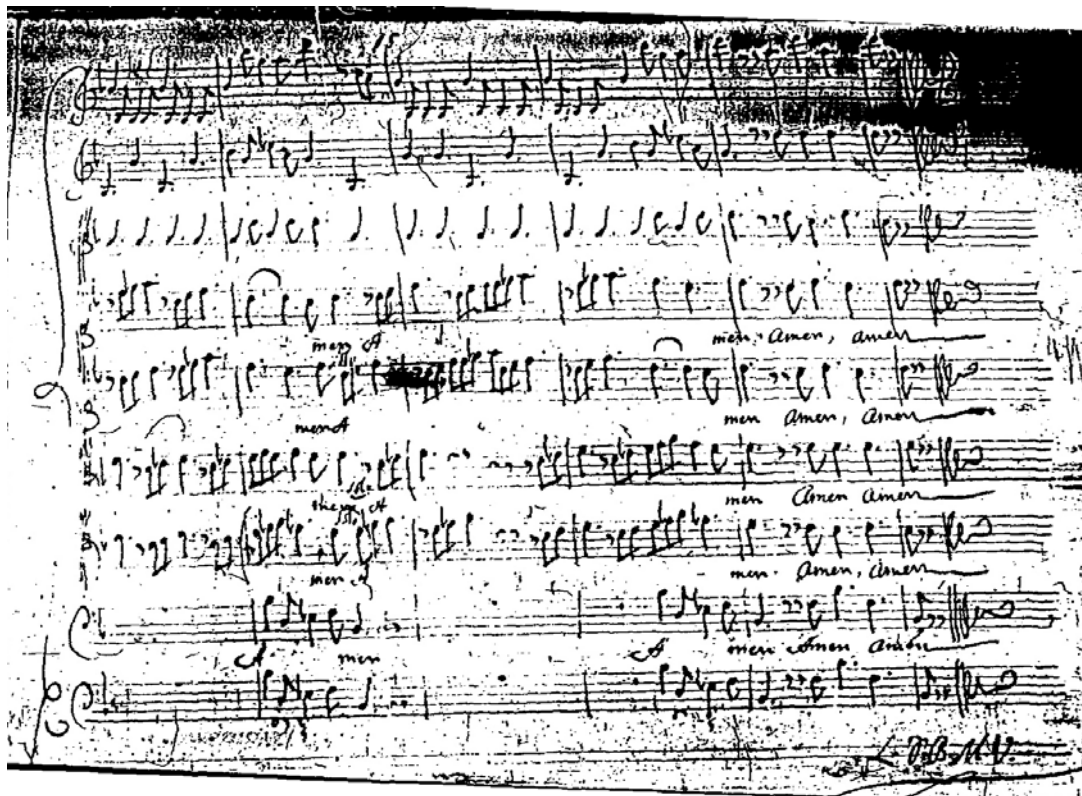 men A men. Amen, amen
men A men Amen, Amen
A men Amen Amen
men A men. Amen, Amen
A men A men Amen Amen